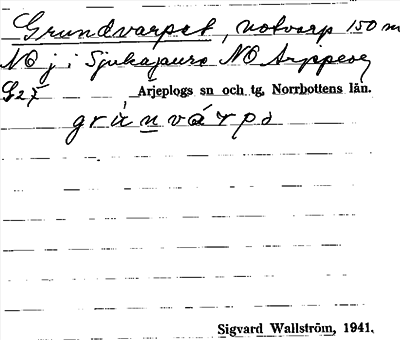 Grundvarpet, notvarp 150 m
NO j i Sjukajaure NO Arjeplog
Arjeplogs sn och tg, Norrbottens län.
grùnvárpə
Sigvard Wallström, 1941.